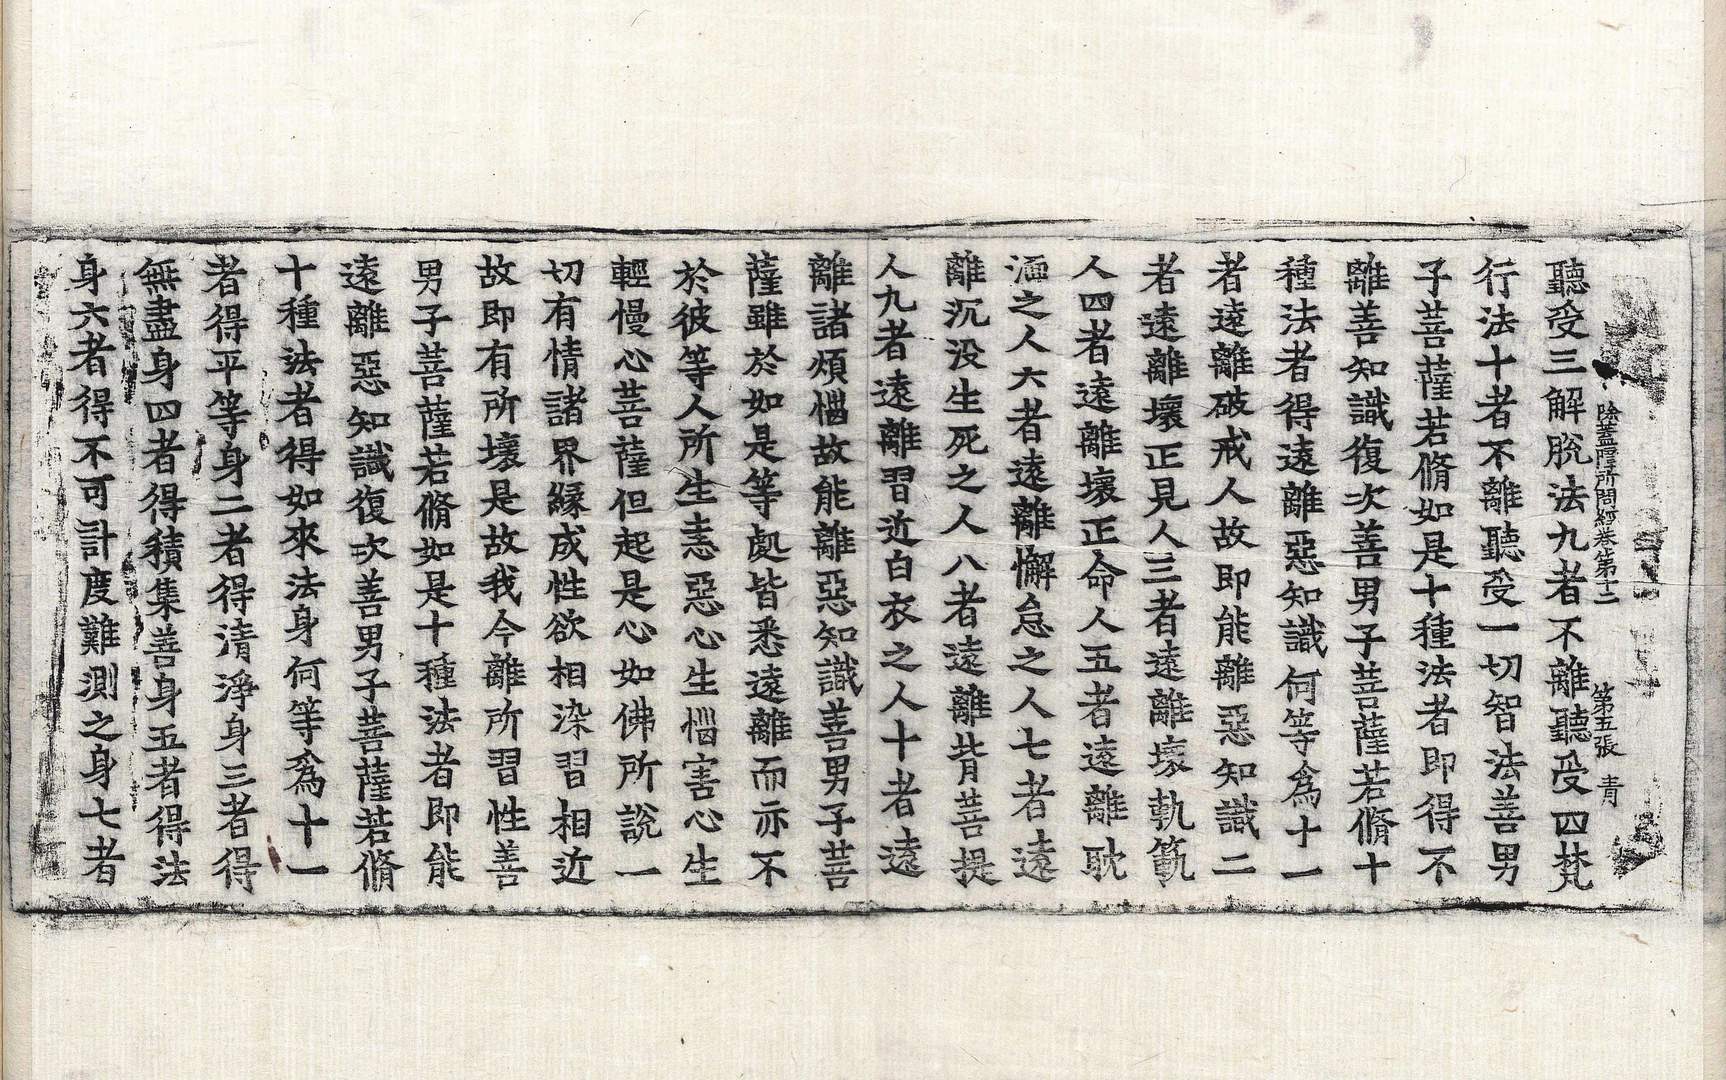 除蓋障所問經卷第十二 第五張 青
聽受三解脫法九者不離聽受四梵
行法十者不離聽受一切智法善男
子菩薩若脩如是十種法者即得不
離善知識復次善男子菩薩若脩十
種法者得遠離惡知識何等為十一
者遠離破戒人故即能離惡知識二
者遠離壞正見人三者遠離壞軌範
人四者遠離壞正命人五者遠離耽
湎之人六者遠離懈怠之人七者遠
離沉没生死之人八者遠離背菩提
人九者遠離習近白衣之人十者遠
離諸煩惱故能離惡知識善男子菩
薩雖於如是等處皆悉遠離而亦不
於彼等人所生恚惡心生惱害心生
輕慢心菩薩但起是心如佛所說一
切有情諸界緣成性欲相染習相近
故即有所壞是故我今離所習性善
男子菩薩若脩如是十種法者即能
遠離惡知識復次善男子菩薩若脩
十種法者得如來法身何等為十一
者得平等身二者得清淨身三者得
無盡身四者得積集善身五者得法
身六者得不可計度難測之身七者